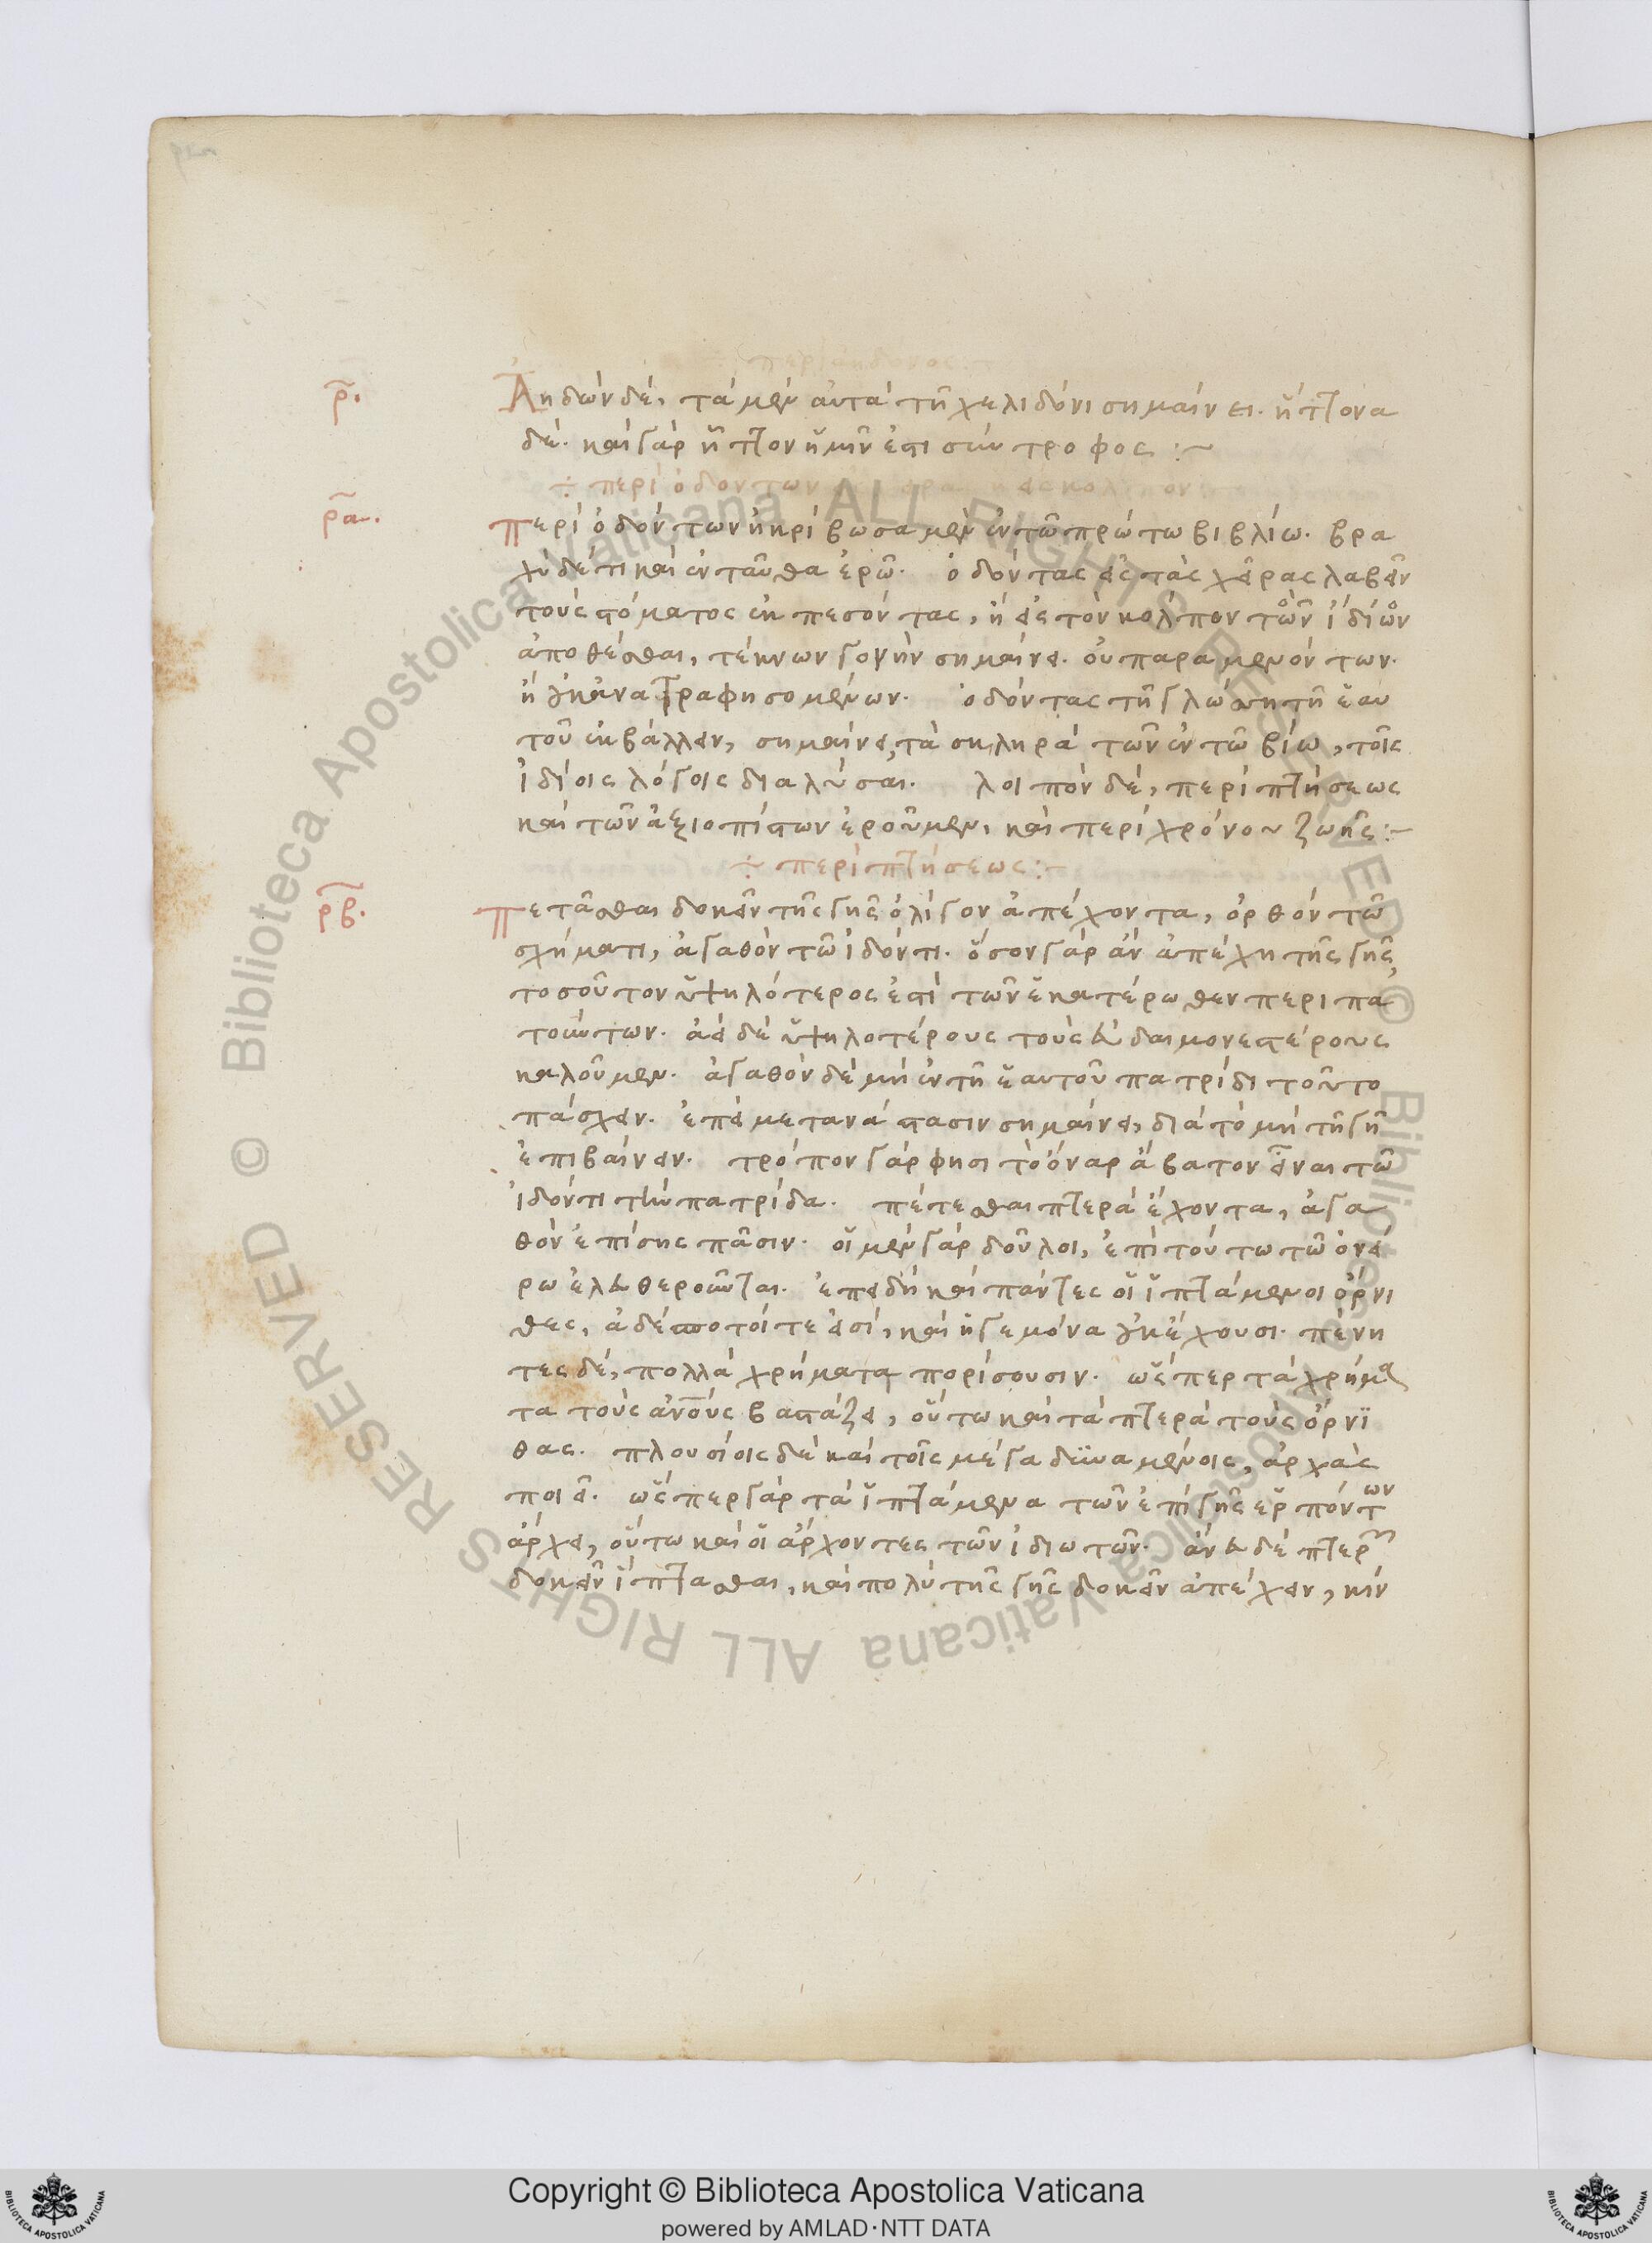 περὶ ἀηδόνος
ρ. Ἀηδὼν δὲ, τὰ μὲν αὐτὰ τῆ χελιδόνι σημαίνει. ἥττονα
δέ. καὶ γὰρ ἧττον ἡμῖν ἐστι σύντροφος :~
÷ περὶ ὀδόντων
ρα. Περὶ ὀδόντων ἠκριβώσαμεν ἐν τῶ πρώτω βιβλίω. βρα
χὺ δέ τι καὶ ἐνταῦθα ἐρῶ. ὀδόντας εἰς τὰς χεῖρας λαβεῖν
τοὺς στόματος ἐκπεσόντας, ἢ εἰς τὸν κόλπον τῶν ἰδίων
ἀποθέσθαι, τέκνων γονὴν σημαίνει. οὐ παραμενόντων.
ἢ οὐκ ἀνατραφησομένων. ὀδόντας τῆ γλώττη τῆ ἑαυ
τοῦ ἐκβάλλειν, σημαίνει, τὰ σκληρὰ τῶν ἐν τῶ βίω, τοῖς
ἰδίοις λόγοις διαλῦσαι. λοιπὸν δὲ, περὶ πτήσεως
καὶ τῶν ἀξιοπίστων ἐροῦμεν, καὶ περὶ χρόνου ζωῆς :~
÷ περὶ πτήσεως :~
ρβ. Πετᾶσθαι δοκεῖν τῆς γῆς ὀλίγον ἀπέχοντα, ὀρθὸν τῶ
σχήματι, ἀγαθὸν τῶ ἰδόντι. ὅσον γὰρ ἂν ἀπέχη τῆς γῆς,
τοσοῦτον ὑψηλότερος ἐστὶ τῶν ἑκατέρωθεν περιπα
τούντων. ἀεὶ δὲ ὑψηλοτέρους τοὺς εὐδαιμονεστέρους
καλοῦμεν. ἀγαθὸν δὲ μὴ ἐν τῆ ἑαυτοῦ πατρίδι τοῦτο
πάσχειν. ἐπεὶ μετανάστασιν σημαίνει, διὰ τὸ μὴ τῆ γῆ
ἐπιβαίνειν. τρόπον γάρ φησι τὸ ὄναρ ἄβατον εἶναι τῶ
ἰδόντι τὴν πατρίδα. πέτεσθαι πτερὰ ἔχοντα, ἀγα
θὸν ἐπίσης πᾶσιν. οἱ μὲν γὰρ δοῦλοι, ἐπὶ τούτω τῶ ὀνεί
ρω ἐλευθεροῦνται. ἐπειδὴ καὶ πάντες οἱ ἱπτάμενοι ὄρνι
θες, ἀδέσποτοί τε εἰσὶ, καὶ ἡγεμόνα οὐκ ἔχουσι. πένη
τες δὲ, πολλὰ χρήματα πορίσουσιν. ὥσπερ τὰ χρήμα
τα τοὺς ἀνους βαστάζει, οὕτω καὶ τὰ πτερὰ τοὺς ὄρνι
θας. πλουσίοις δὲ καὶ τοῖς μέγα δυναμένοις, ἀρχὰς
ποιεῖ. ὥσπερ γὰρ τὰ ἱπτάμενα τῶν ἐπὶ γῆς ἑρπόντων
ἄρχει, οὕτω καὶ οἱ ἄρχοντες τῶν ἰδιωτῶν. ἄνευ δὲ πτερῶν
δοκεῖν ἵπτασθαι, καὶ πολὺ τῆς γῆς δοκεῖν ἀπέχειν, κίν
Copyright © Biblioteca Apostolica Vaticana
powered by AMLAD·NTT DATA
BIBLIOTECA APOSTOLICA VATICANA
BIBLIOTECA APOSTOLICA VATICANA
© Biblioteca Apostolica Vaticana ALL RIGHTS RESERVED © Biblioteca Apostolica Vaticana ALL RIGHTS RESERVED